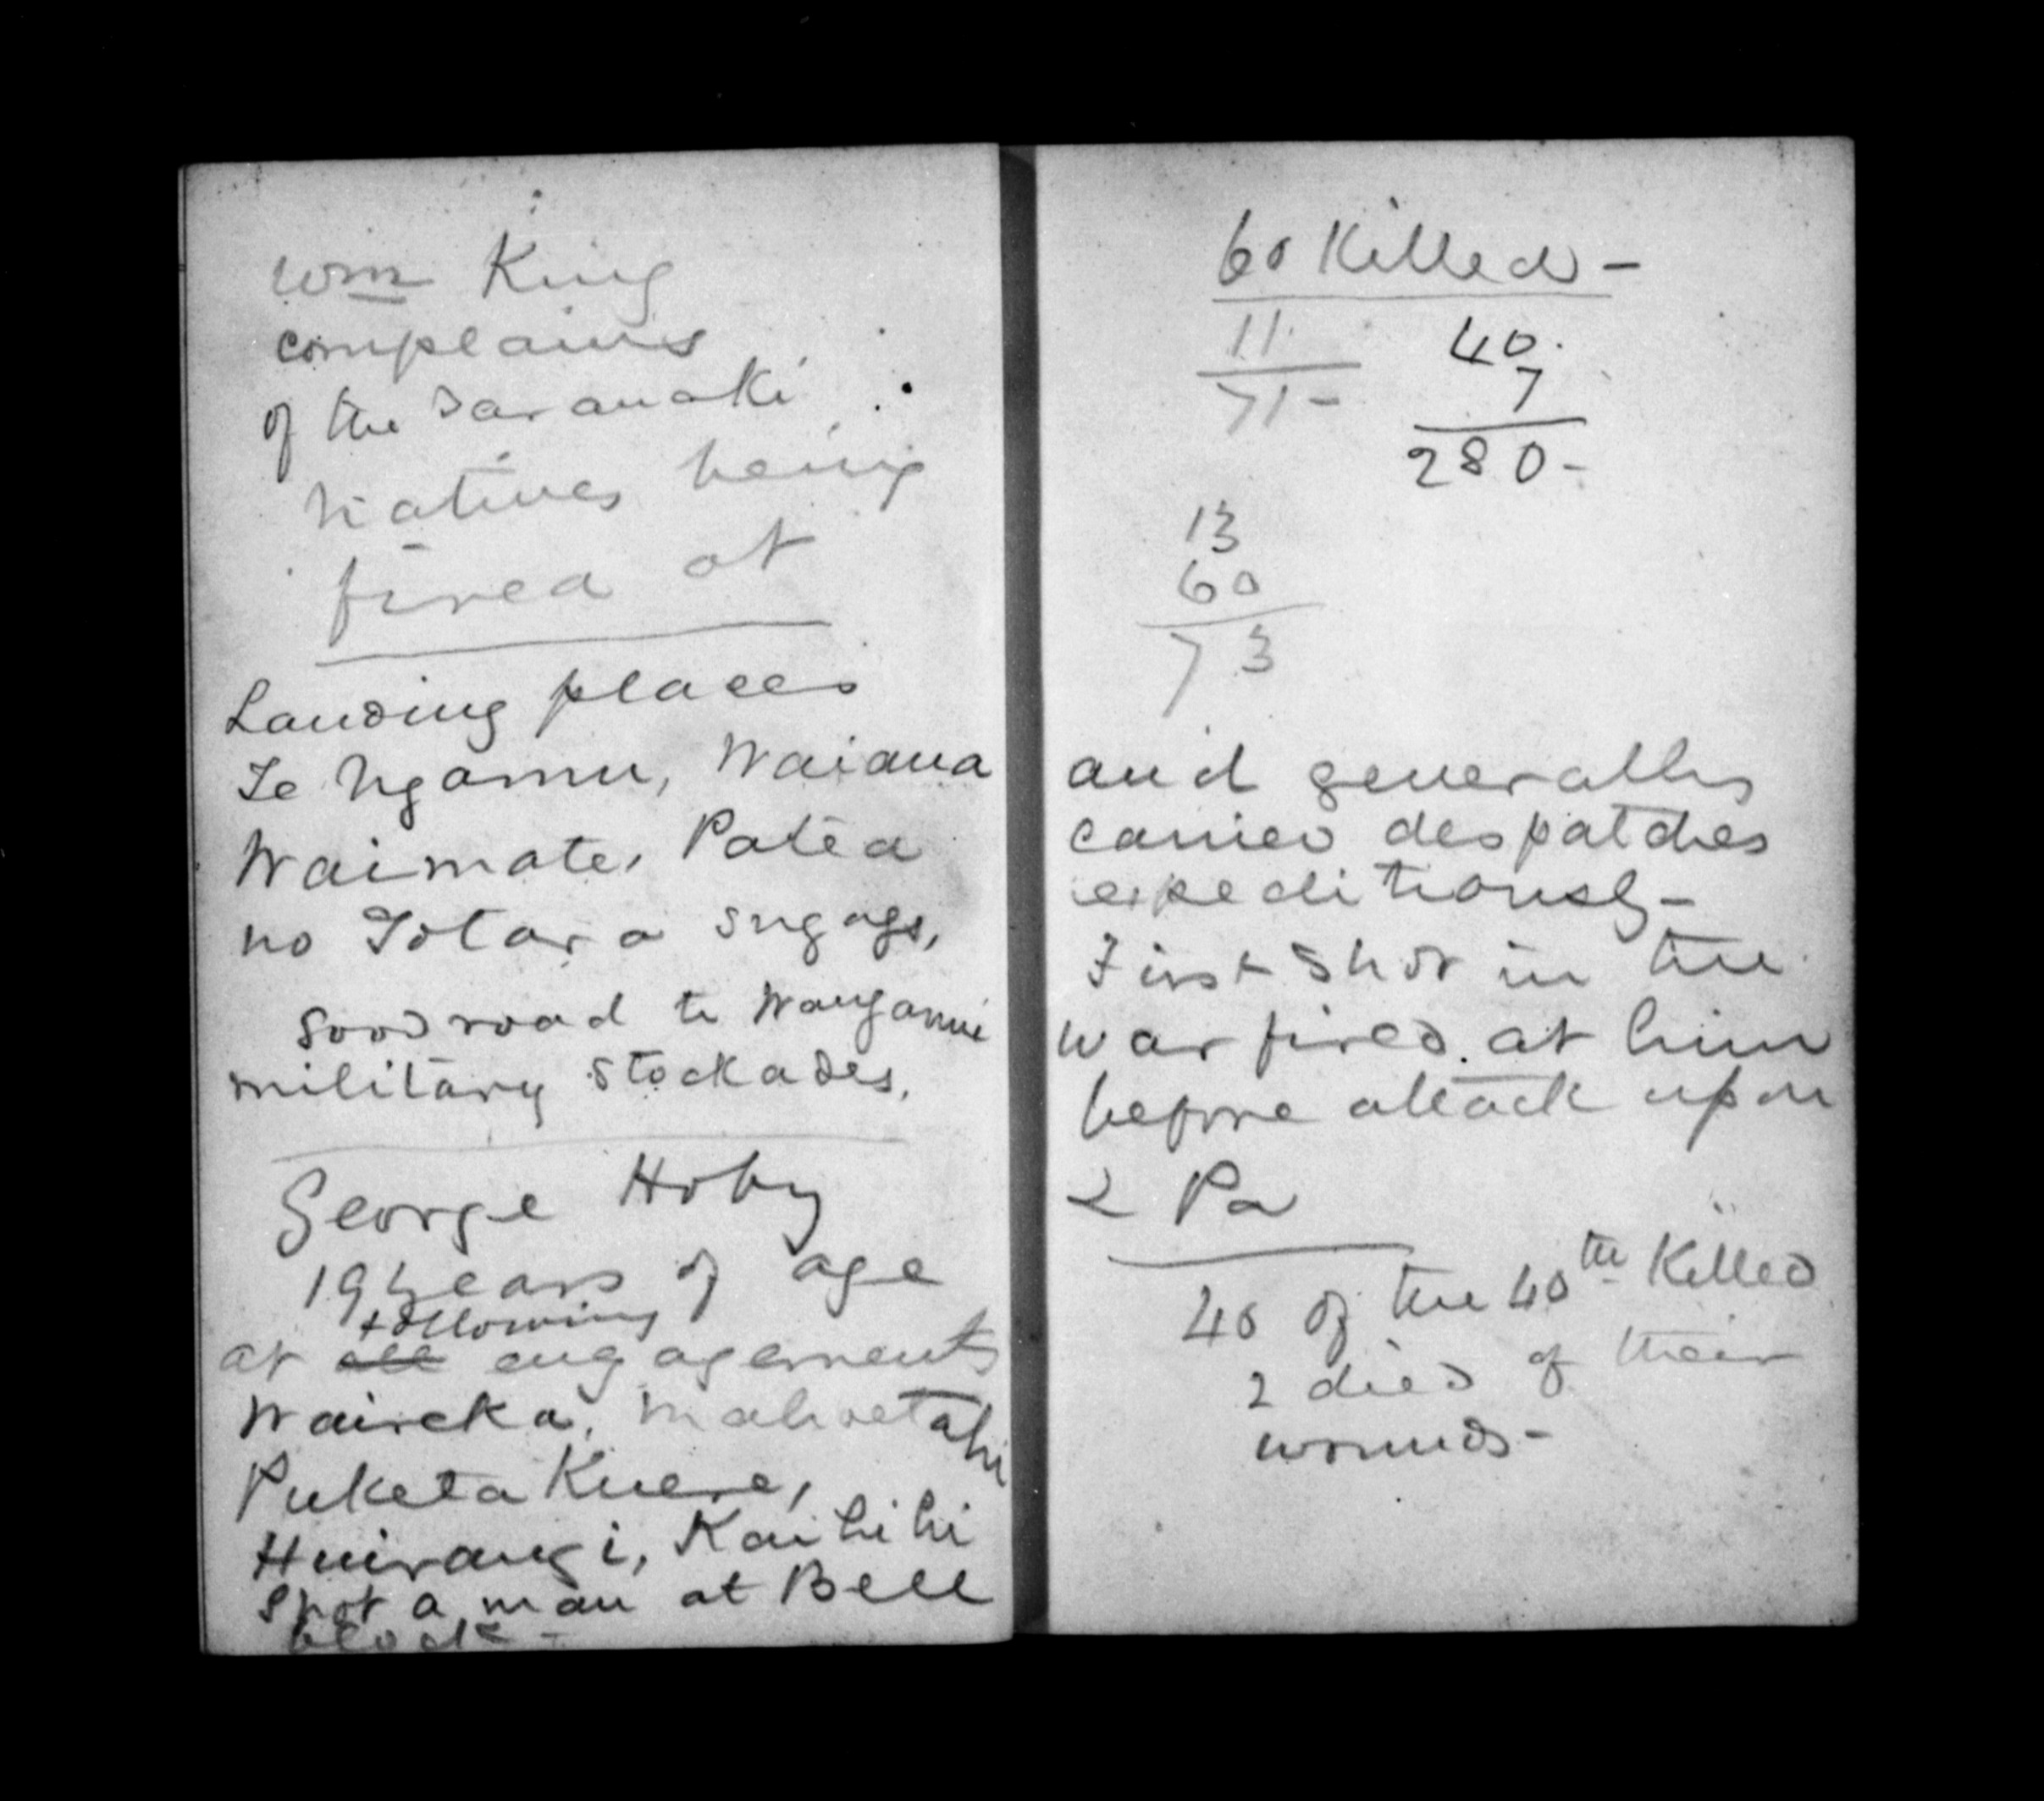 Wm King
complains
of the Taranaki
Natives being
fired at
Landing places
Te Ngamu, Waiana
Waimate, Patea
no Totara snags,
Good road to Wanganui
military stockades.
George Hoby
19 years of age
following
at all engagements
Waireka, Mahoetahi
Puketa Kuere,
Huirangi, Kaihihi
Shot a man at Bell
block -
60 Killed -
11
71 -
40
7
280 -
13
60
73
and generally
carried despatches
expeditiously -
First shot in the
war fired at him
before attack upon
L Pa
40 of the 40th Killed
2 died of their
wounds -